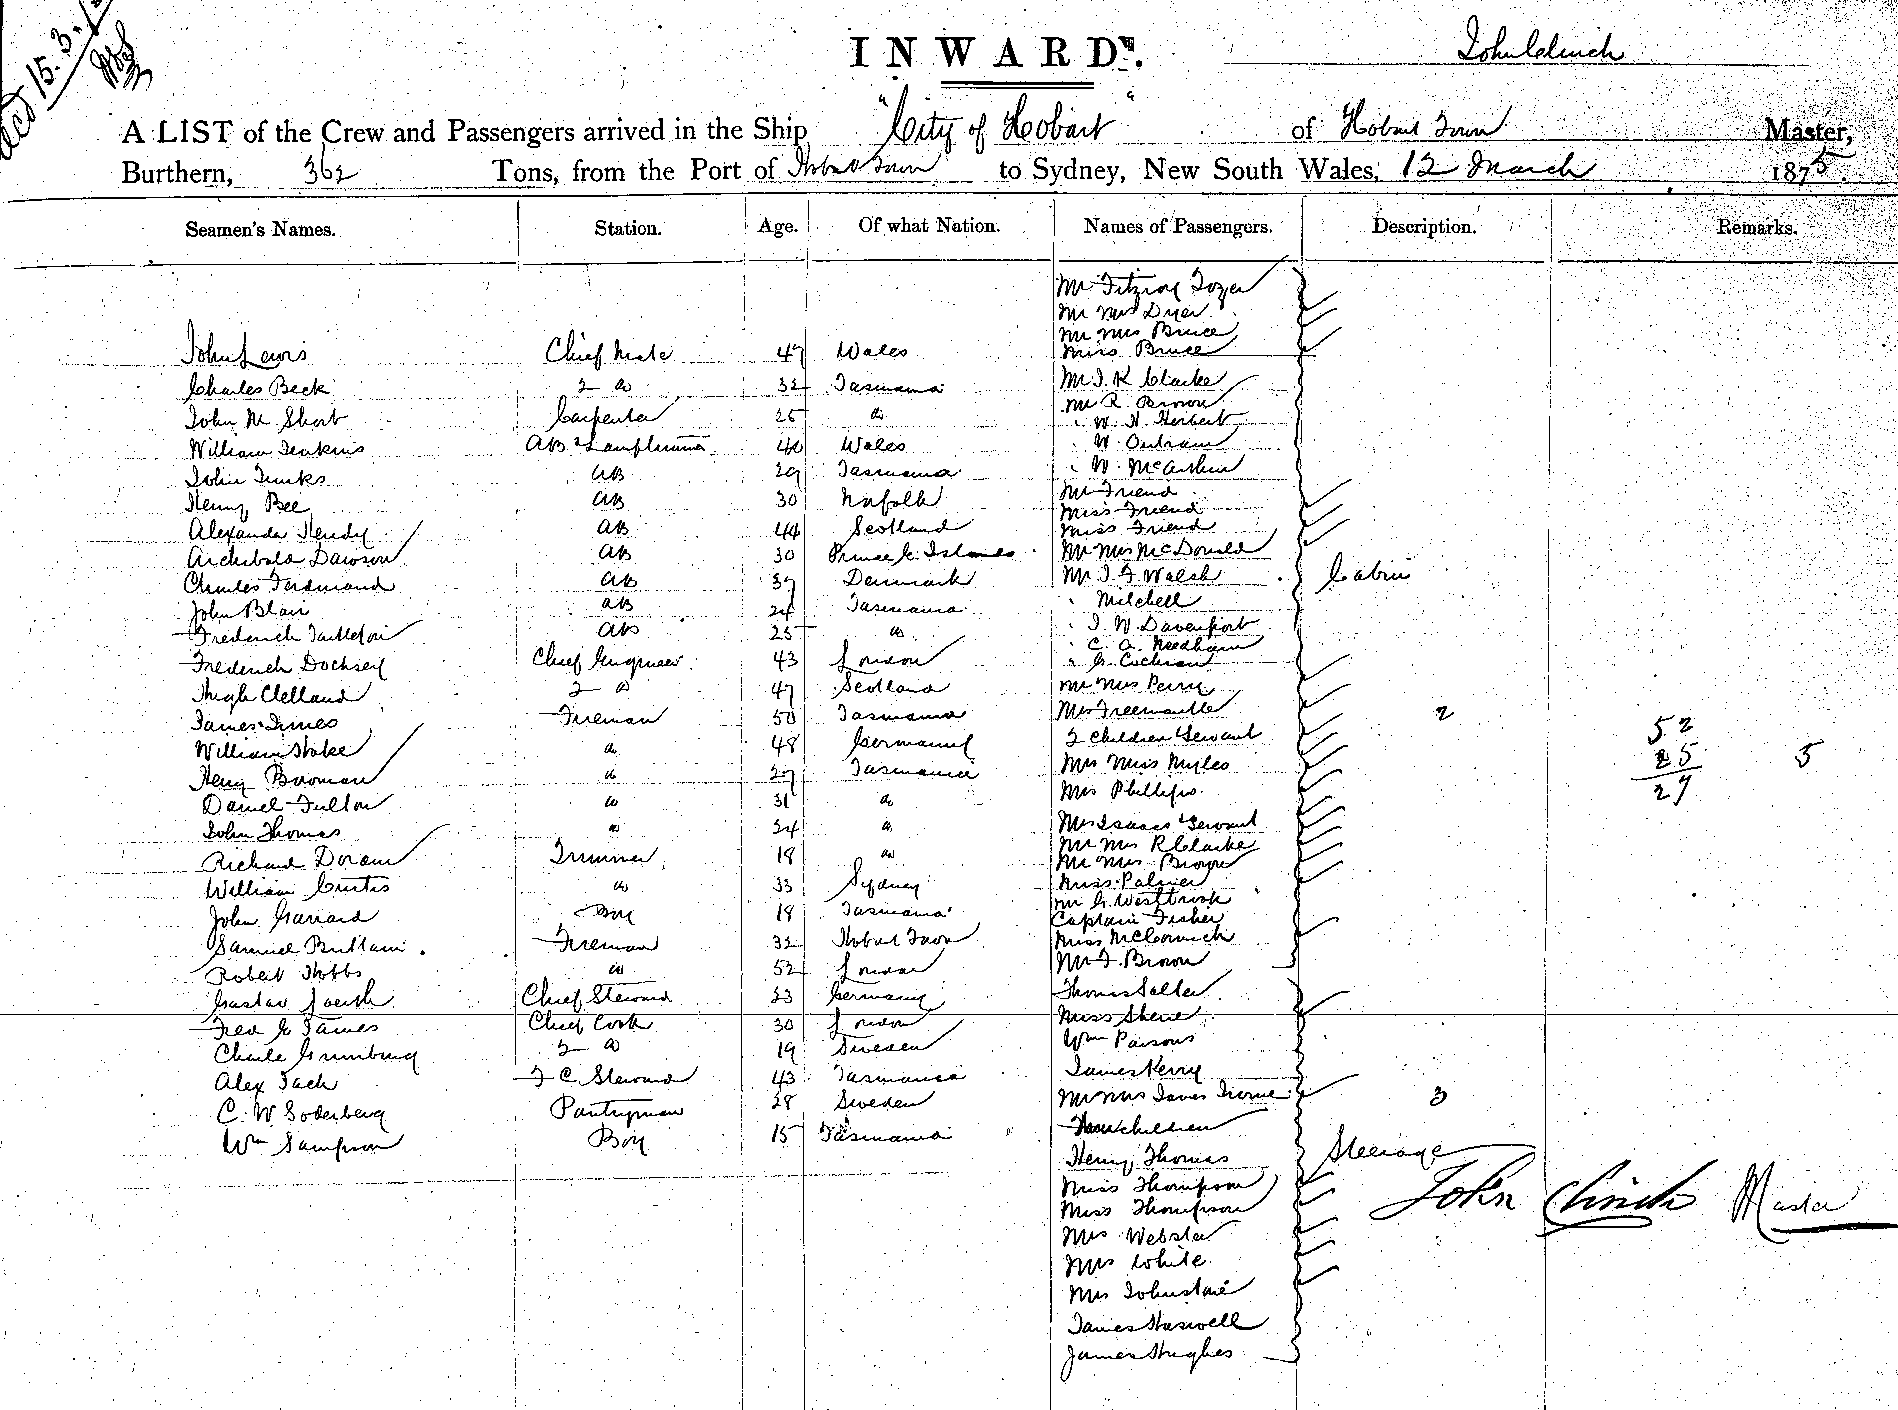 Recd 15.3.
INWARDS.
John Clinch
A LIST of the Crew and Passengers arrived in the Ship "City of Hobart" of Hobart Town Master,
Burthern, 362 Tons, from the Port of Hobart Town to Sydney, New South Wales, 12 March 1875.
Seamen's Names. Station. Age. Of what Nation. Names of Passengers. Description. Remarks.
Mr Fitzroy Tozer
Mr Mrs Dyer
Mr Mrs Bruce
John Lewis Chief Mate 47 Wales Miss Bruce
Charles Beck 2 do 32 Tasmania Mr J. K Clarke
Mr R. Brown
John M. Short Carpenter 25 do W. H. Herbert
William Jenkins AB & Lamptrimmer 40 Wales W. Outram
John Junks AB 29 Tasmania W. McArthur
Henry Bee AB 30 Norfolk Mr Friend
Miss Friend
Alexander Hendy AB 44 Scotland Miss Friend
Archibald Dawson AB 30 Prince E. Islands Mr Mrs McDonald
Charles Ferdinand AB 37 Denmark Mr J. F Walsh Cabin
John Blair AB 24 Tasmania Mitchell
Frederick Tattleton AB 25 do J. W. Davenport
C. A. Needham
Frederick Dochsey Chief Engineer 43 London G. Cochran
Hugh Clelland 2 do 47 Scotland Mr Mrs Perry
James Jimes Fireman 50 Tasmania Mrs Freemantle 2 52
William Hoke do 48 Germany 2 Children & Servant 25 5
Henry Bowman do 27 Tasmania Mrs Miss Myles 27
Daniel Fulton do 31 do Mrs Phillips
John Thomas do 24 do Mrs Isaacs & Servant
Mr Mrs R Clarke
Richard Doran Trimmer 18 do Mr Mrs Brown
William Curtis do 33 Sydney Miss Palmer
Mr G. Westbrook
John Garrard Boy 18 Tasmania Captain Fisher
Samuel Brittain Fireman 32 Hobart Town Miss McCormick
Robert Hobbs do 52 London Mr F. Brown
Gustav Joerth Chief Steward 23 Germany Thomas Salter
Fred G James Chief Cook 30 London Miss Shene
Charle Grunburg 2 do 19 Sweden Wm Parsons
Alex Jack F C. Steward 43 Tasmania James Kerry
C. W Soderberg Pantryman 28 Sweden Mr Mrs James Irvine 3
Wm Sampson Boy 15 Tasmania Four children
Henry Thomas Steerage
Miss Thompson John Clinch Master
Miss Thompson
Mrs Webster
Mrs White
Mrs Johnstone
James Haswell
James Hughes